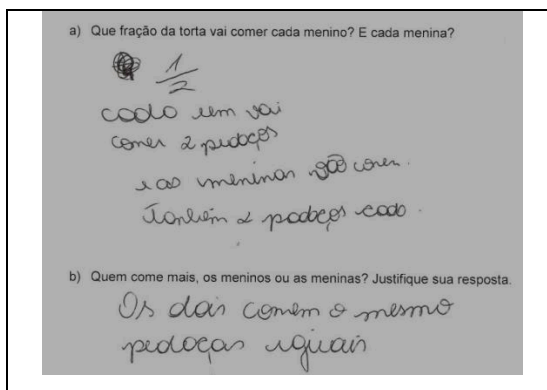 a) Que fração da torta vai comer cada menino? E cada menina?
1/2
cada um vai
comer 2 pedaços
e as meninas vão comer.
Também 2 pedaços cada.
b) Quem come mais, os meninos ou as meninas? Justifique sua resposta.
Os dois comem o mesmo
pedoças iguais